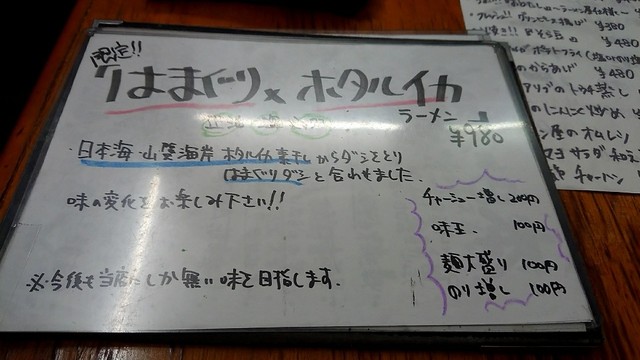 限定!!
はまぐり×ホタルイカ
ラーメン
¥980
・日本海・山陰海岸 ホタルイカ素干しからダシをとり
はまぐりダシと合わせました。
味の変化をお楽しみ下さい!!
チャーシュー増し 200円
味玉 100円
麺大盛り 100円
のり増し 100円
※今後も当店にしか無い味を目指します。
¥380
¥480
ポテトフライ
のからあげ ¥480
のにんにく炒め
屋のオムレツ
サラダ
チャーハン